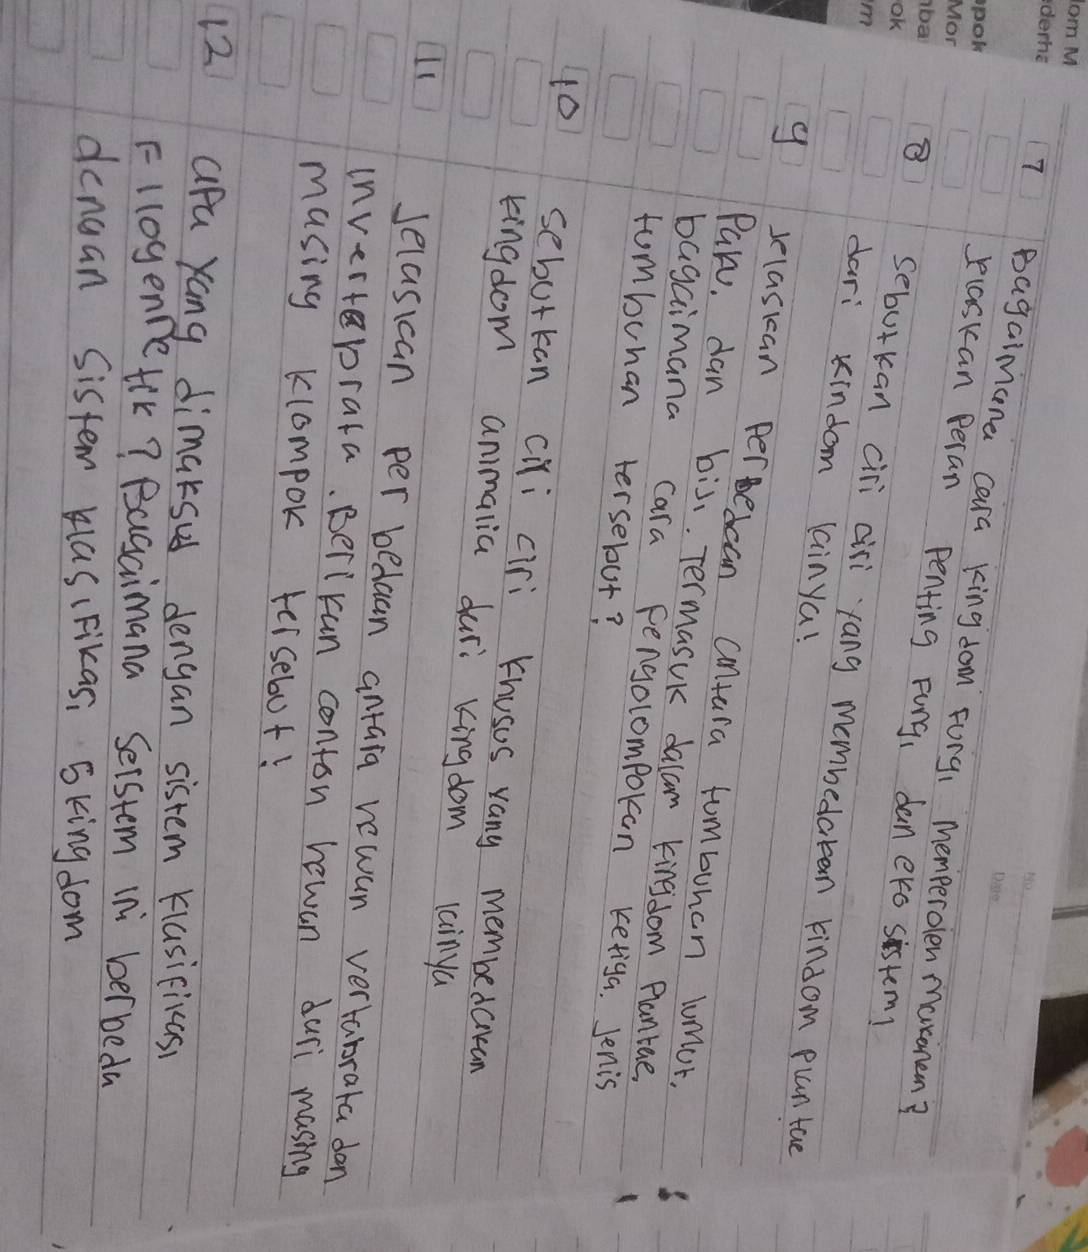 7 Bagaimana cara kingdom Fungi memperoleh makanan?
Jelaskan Peran Penting Fungi dan eko sistem?
8 Sebutkan ciri ciri yang membedakan kindom plantae
dari kindom lainya!
9 Jelaskan Perbedaan antara tumbuhan lumut,
Paku, dan biji. Termasuk dalam kingdom Plantae,
bagaimana cara Pengolompokan ketiga Jenis
tumbuhan tersebut?
10 Sebutkan ciri ciri khusus yang membedakan
kingdom animalia dari kingdom lainya
11 Jelaskan perbedaan antara hewan vertabrata dan
invertebrata. Berikan contoh hewan dari masing
masing klompok tersebut!
12 apa yang dimaksud dengan sistem klasifikasi
Filogenetik? Bagaimana seistem ini berbeda
dengan sistem klasifikasi 5 kingdom